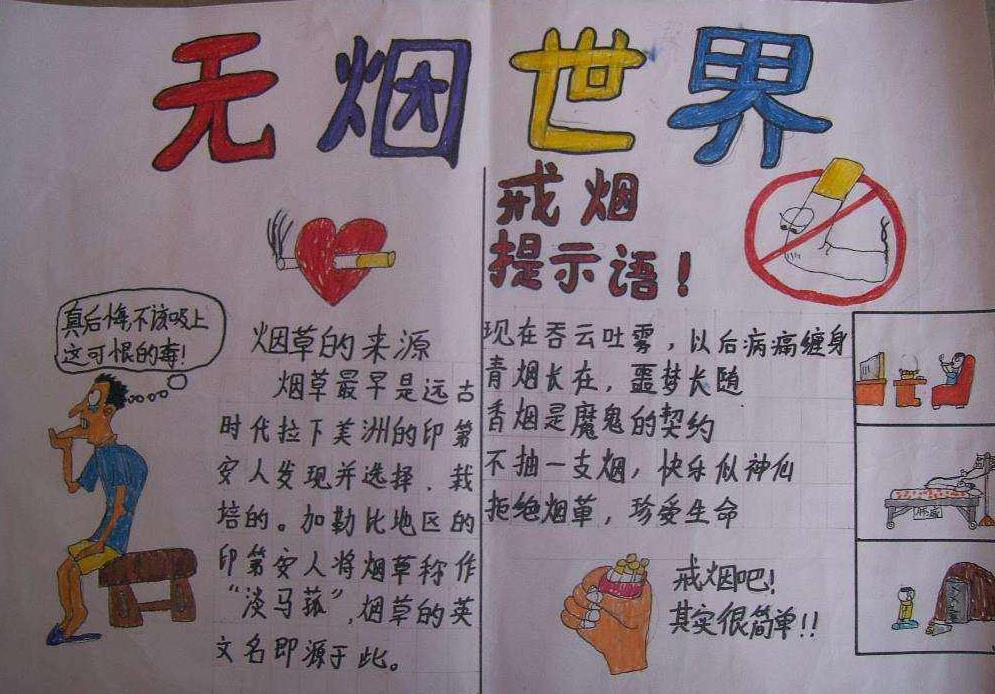 无烟世界
真后悔,不该吸上
这可恨的毒!
烟草的来源
烟草最早是远古
时代拉下美洲的印第
安人发现并选择、栽
培的。加勒比地区的
印第安人将烟草称作
“淡马菰”,烟草的英
文名即源于此。
戒烟
提示语!
现在吞云吐雾,以后病痛缠身
青烟长在,噩梦长随
香烟是魔鬼的契约
不抽一支烟,快乐似神仙
拒绝烟草,珍爱生命
戒烟吧!
其实很简单!!